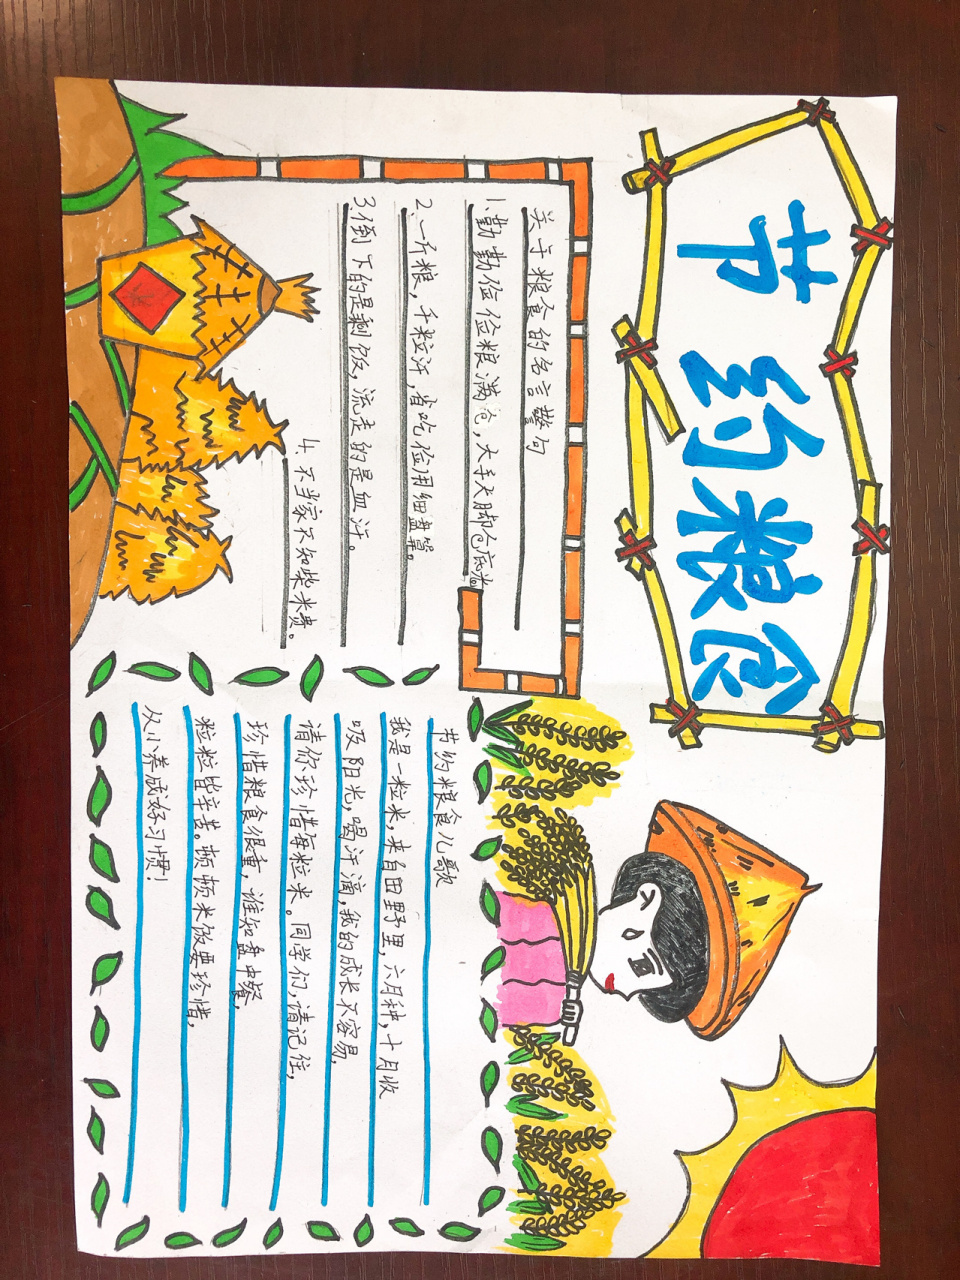 节约粮食
关于粮食的名言警句
1.勤勤俭俭粮满仓，大手大脚仓底光
2.一斤粮，千粒汗，省吃俭用细盘算。
3.倒下的是剩饭，流走的是血汗。
4.不当家不知柴米贵。
节约粮食儿歌
我是一粒米，来自田野里，六月种，十月收
吸阳光，喝汗滴，我的成长不容易，
请你珍惜每粒米。同学们，请记住，
珍惜粮食很重，谁知盘中餐，
粒粒皆辛苦。顿顿米饭要珍惜，
从小养成好习惯！